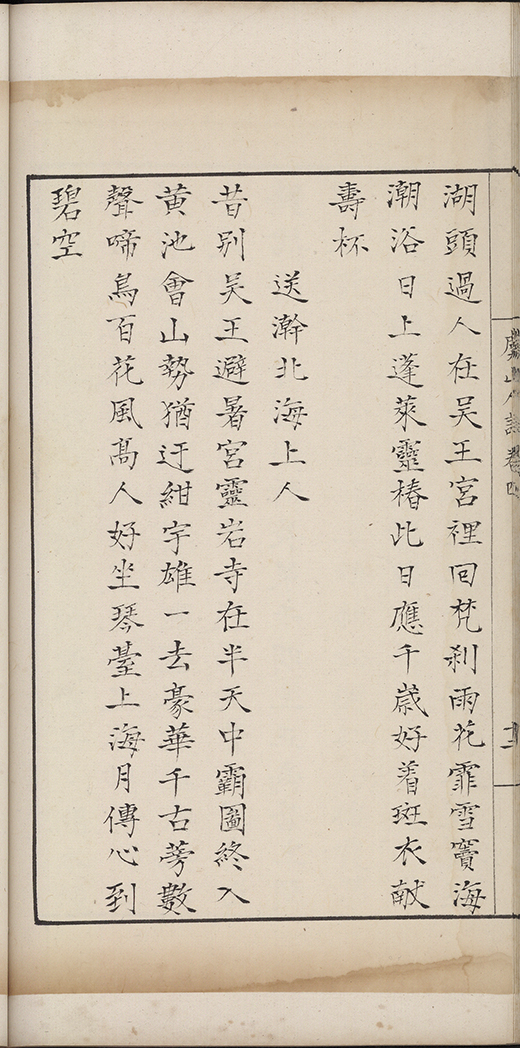 湖頭過人在吴王宮裡回梵刹雨花霏雪竇海
潮浴日上蓬萊靈椿此日應千歲好着斑衣献
壽杯
送瀚北海上人
昔別吴王避暑宮靈岩寺在半天中霸圖終入
黄池會山勢猶迂紺宇雄一去豪華千古夢數
聲啼鳥百花風髙人好坐琴䑓上海月傳心到
碧空
山人詩卷四